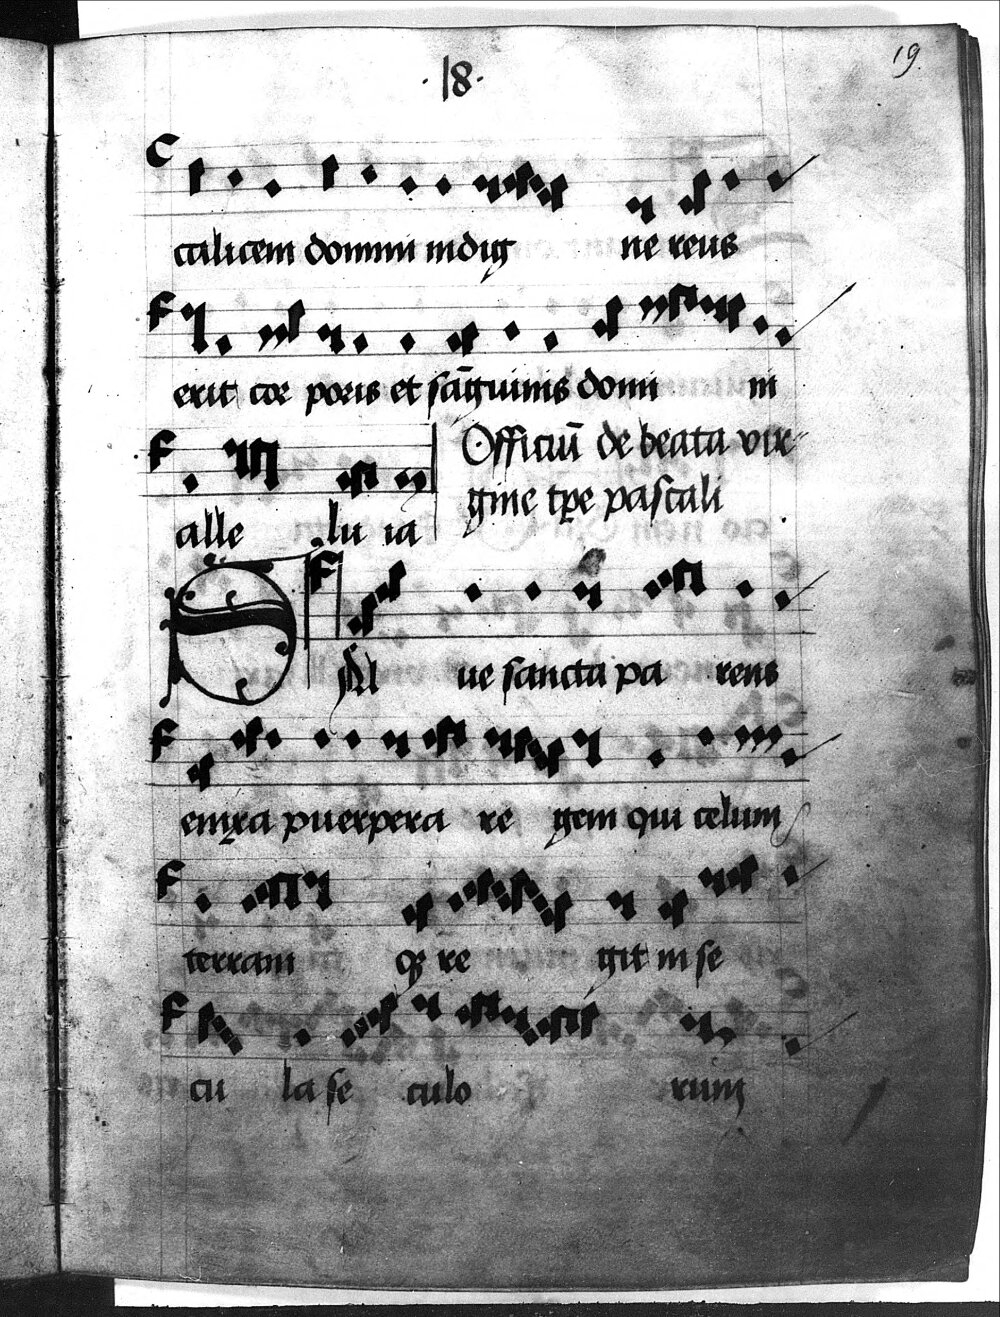 19.
·18·
C
calicem domini indig ne reus
F
erit cor poris et sāguinis domi ni
F
Officiū de beata vir
gine tpe pascali
alle lu ia
F
SAl ue sancta pa rens
F
enixa puerpera re gem qui celum
F
terram q; re git in se
F
cu la se culo rum